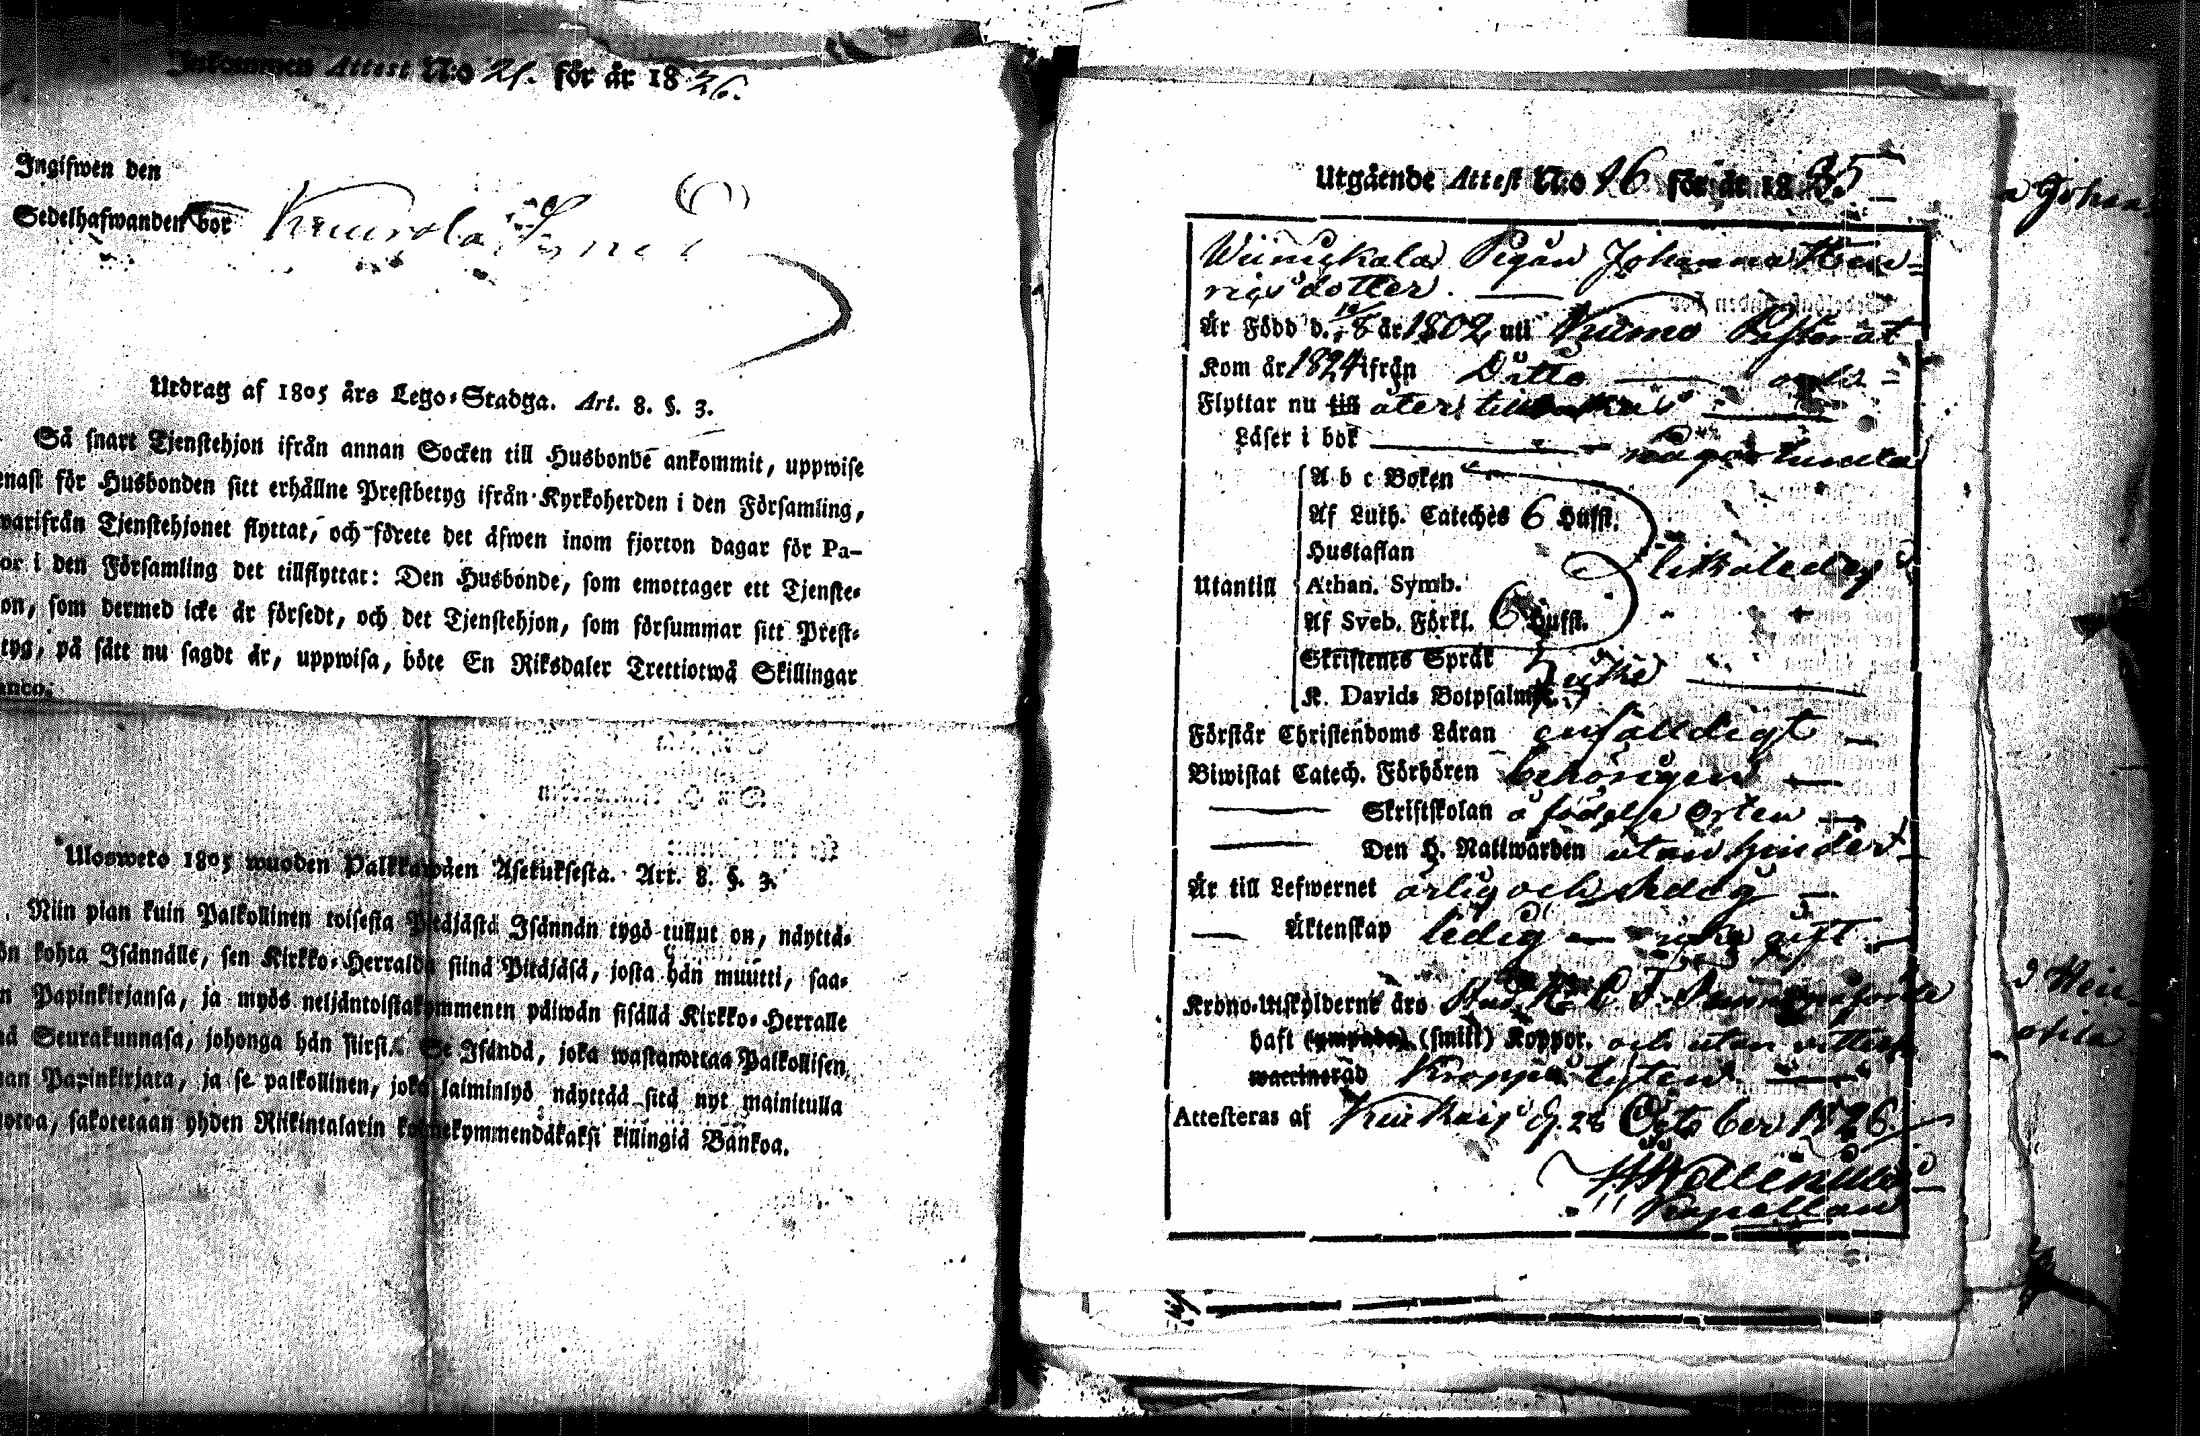 Inkommen Attest N:o 21. för år 1826.
Ingifwen den
Sedelhafwanden bor
Utdrag af 1805 års Lego-Stadga. Art. 8. §. 3.
Så snart Tjenstehjon ifrån annan Socken till Husbonde ankommit, uppwise
enast för Husbonden sitt erhållne Prestbetyg ifrån Kyrkoherden i den Församling,
warifrån Tjenstehjonet flyttat, och förete det äfwen inom fjorton dagar för Pa-
or i den Församling det tillflyttat: Den Husbonde, som emottager ett Tjenste-
on, som dermed icke är försedt, och det Tjenstehjon, som försummar sitt Prest-
tyg, på sätt nu sagdt är, uppwisa, böte En Riksdaler Trettiotwå Skillingar
anco.
Ulosweto 1805 wuoden Palkkawäen Asetuksesta. Art. 8. §. 3.
Niin pian kuin Palkollinen toisesta Pitäjästä Isännän tygö tullut on, näyttä-
ön kohta Isännälle, sen Kirkko-Herralda siinä Pitäjäsä, josta hän muutti, saa-
n Papinkirjansa, ja myös neljäntoistakymmenen päiwän sisällä Kirkko-Herralle
nä Seurakunnasa, johonga hän siirsi. Se Isändä, joka wastanottaa Palkollisen,
nan Papinkirjata, ja se palkollinen, joka laiminlyö näyttää sitä nyt mainitulla
uotoa, sakotetaan yhden Riikintalarin kolmekymmendäkaksi killingiä Bankoa.
Utgående Attest N:o 16 för år 1825
Pigan Johanna Hen-
rigsdotter.
År Född d. 18/8 år 1802 uti Kumo Pastorat
Kom år 1824 ifrån Ditto
Flyttar nu till åter tillbakas
Läser i bok någorlunda
Utantill
A b c Boken
Af Luth. Cateches 6 Hufst.
Hustaflan
Athan. Symb.
Af Sveb. Förkl. 6 Hufst.
Skriftenes Språk
K. Davids Botpsalmer. 7
Förstår Christendoms Läran enfalldigt
Biwistat Catech. Förhören behörigen
Skriftskolan å födelse Orten
Den H. Nattwarden utan hinder
Är till Lefwernet ärlig och sedig
Äktenskap ledig icke gift
Krono-Utskylderne åro
haft (ympade) (smitt) Koppor. och utan
waccinerad Kropps lyten
Attesteras af d. 28 October 1826.
Kapellan